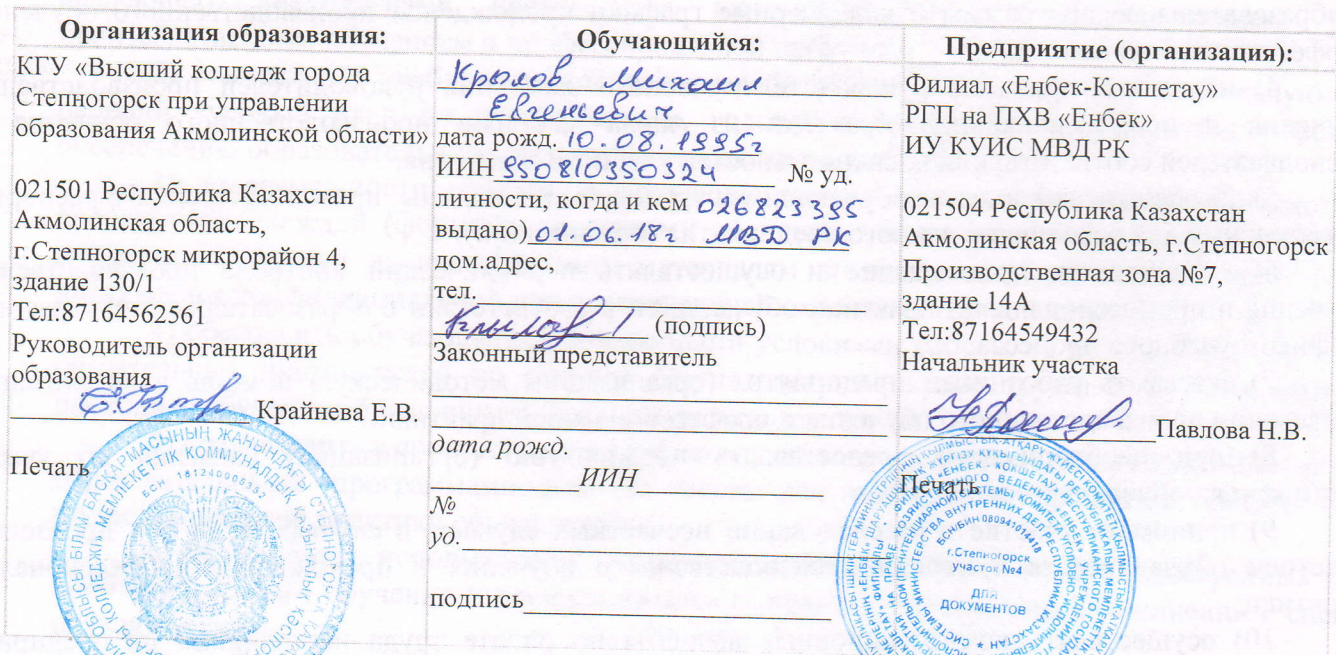 Организация образования:
КГУ «Высший колледж города
Степногорск при управлении
образования Акмолинской области»
021501 Республика Казахстан
Акмолинская область,
г.Степногорск микрорайон 4,
здание 130/1
Тел:87164562561
Руководитель организации
образования
Крайнева Е.В.
Печать
Обучающийся:
Крылов Михаил
Евгеньевич
дата рожд. 10.08.1995г
ИИН 950810350324 № уд.
личности, когда и кем 026823395
выдано) 01.06.18г МВД РК
дом.адрес,
тел.
(подпись)
Законный представитель
дата рожд.
ИИН
№
уд.
подпись
Предприятие (организация):
Филиал «Енбек-Кокшетау»
РГП на ПХВ «Енбек»
ИУ КУИС МВД РК
021504 Республика Казахстан
Акмолинская область, г.Степногорск
Производственная зона №7,
здание 14А
Тел:87164549432
Начальник участка
Павлова Н.В.
Печать
г.Степногорск
участок №4
ДЛЯ
ДОКУМЕНТОВ